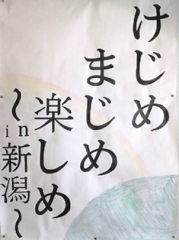 けじめ
まじめ
楽しめ
～in新潟～